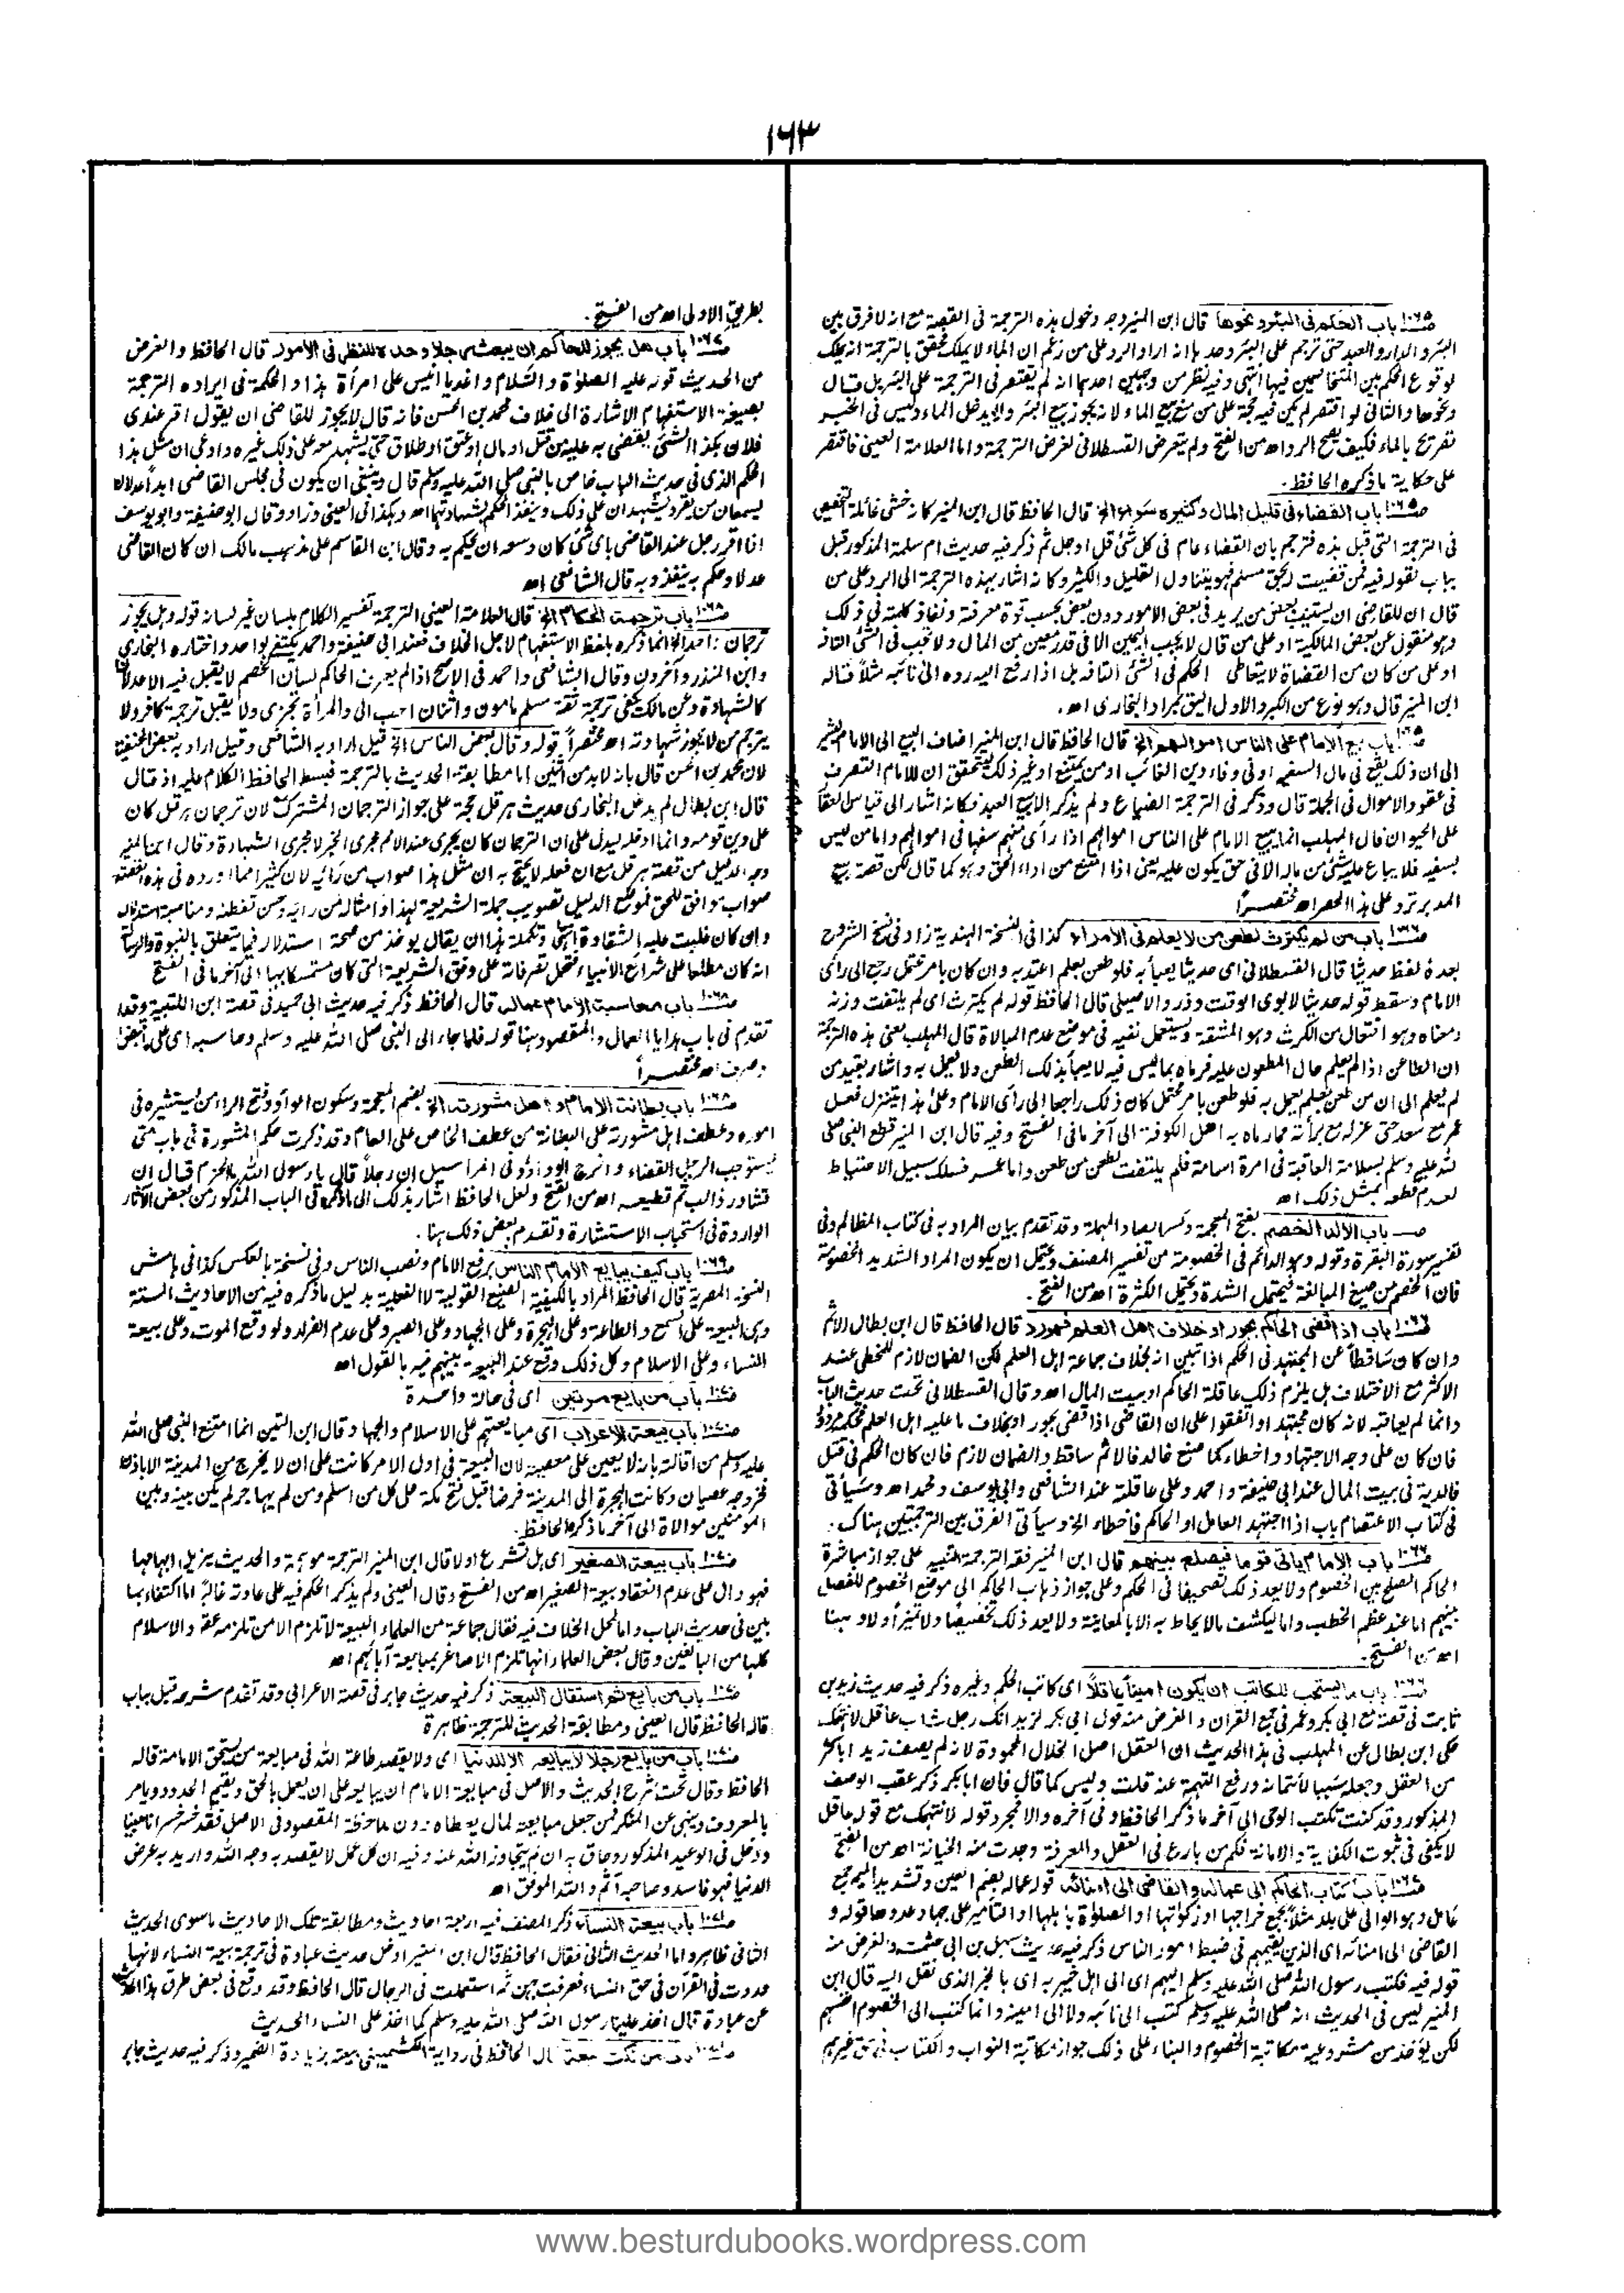 ۱۶۳
ص۱۰۶۵ باب الحكم فى البئر ونحوها قال ابن المنير وجه دخول هذه الترجمة فى القصة مع انه لا فرق بين
البئر والدار والعبد حتى ترجم على البئر وحدها انه اراد الرد على من زعم ان الماء لا يملك فحقق بالترجمة انه يملك
لوقوع الحكم بين المتخاصمين فيها انتهى وفيه نظر من وجهين احدهما انه لم يقتصر فى الترجمة على البئر بل قال
ونحوها والثانى لو اقتصر لم يكن فيه حجة على من منع بيع الماء لانه يجوز بيع البئر ولا يدخل الماء وليس فى الخبر
تصريح بالماء فكيف يصح الرد اھ من الفتح ولم يتعرض القسطلانى لغرض الترجمة واما العلامة العينى فاقتصر
على حكاية ما ذكره الحافظ۔
ص۱۰۶۵ باب القضاء فى قليل المال وكثيره سواء الخ قال الحافظ قال ابن المنير كانه خشى غائلة التخصيص
فى الترجمة التى قبل هذه فترجم بان القضاء عام فى كل شئ قل او جل ثم ذكر فيه حديث ام سلمة المذكور قبل
بباب لقوله فيه فمن قضيت له بحق مسلم فهو يتناول القليل والكثير وكانه اشار بهذه الترجمة الى الرد على من
قال ان للقاضى ان يستنيب بعض من يريد فى بعض الامور دون بعض بحسب قوة معرفته ونفاذ كلمته فى ذلك
وهو منقول عن بعض المالكية او على من قال لا يجب اليمين الا فى قدر معين من المال ولا تجب فى الشئ التافه
او على من كان من القضاة لا يتعاطى الحكم فى الشئ التافه بل اذا رفع اليه رده الى نائبه مثلاً قاله
ابن المنير قال وهو نوع من الكبر والاول اليق بمراد البخارى اھ۔
باب بيع الامام على الناس اموالهم الخ قال الحافظ قال ابن المنير اضاف البيع الى الامام ليشير
الى ان ذلك يقع فى مال السفيه او فى وفاء دين الغائب او من يمتنع او غير ذلك ليتحقق ان للامام التصرف
فى عقود الاموال فى الجملة قال وذكر فى الترجمة الضياع ولم يذكر الا بيع العبد فكانه اشار الى قياس العقار
على الحيوان قال المهلب انما يبيع الامام على الناس اموالهم اذا رأى منهم سفها فى اموالهم واما من ليس
بسفيه فلا يباع عليه شئ من ماله الا فى حق يكون عليه يعنى اذا امتنع من اداء الحق وهو كما قال لكن قصة بيع
المدبر ترد على هذا الحصر اھ مختصراً
ص۱۰۶۶ باب من لم يكترث لطعن من لا يعلم فى الامراء كذا فى النسخة الهندية زاد فى نسخ الشروح
بعده لفظ حديثا قال القسطلانى اى حديثا يعبأ به فلو طعن بعلم اعتد به وان كان بامر محتمل رجع الى رأى
الامام وسقط قوله حديثا لابوى الوقت وذر والاصيلى قال الحافظ قوله لم يكترث اى لم يلتفت وزنه
ومعناه وهو افتعال من الكرث وهو المشقة ويستعمل نفيه فى موضع عدم المبالاة قال المهلب معنى هذه الترجمة
ان الطاعن اذا لم يعلم حال المطعون عليه فرماه بما ليس فيه لا يعبأ بذلك الطعن ولا يعمل به واشار بقيد من
لم يعلم الى ان من طعن بعلم يعمل به فلو طعن بامر محتمل كان ذلك راجعا الى رأى الامام وعلى هذا يتنزل فعل
عمر مع سعد حتى عزله مع برأته مما رماه به اهل الكوفة الى آخر ما فى الفتح وفيه قال ابن المنير قطع النبى صلى
الله عليه وسلم بسلامة العاقبة فى امرة اسامة فلم يلتفت لطعن من طعن واما عمر فسلك سبيل الاحتياط
لعدم قطعه بمثل ذلك اھ
باب الالد الخصم بفتح المعجمة وكسر الصاد المهملة وقد تقدم بيان المراد به فى كتاب المظالم وفى
تفسير سورة البقرة وقوله وهو الدائم فى الخصومة من تفسير المصنف ويحتمل ان يكون المراد الشديد الخصومة
فان الخصم من صيغ المبالغة فيحتمل الشدة ويحتمل الكثرة اھ من الفتح۔
ص۱۰۶۶ باب اذا قضى الحاكم بجور او خلاف اهل العلم فهو رد قال الحافظ قال ابن بطال الاثم
وان كان ساقطاً عن المجتهد فى الحكم اذا تبين انه بخلاف جماعة اهل العلم لكن الضمان لازم للمخطى عند
الاكثر مع الاختلاف هل يلزم ذلك عاقلة الحاكم او بيت المال اھ وقال القسطلانى تحت حديث الباب
وانما لم يعاقبه لانه كان مجتهدا واتفقوا على ان القاضى اذا قضى بجور او بخلاف ما عليه اهل العلم فحكمه مردود
فان كان على وجه الاجتهاد واخطاء كما صنع خالد فالاثم ساقط والضمان لازم فان كان الحكم فى قتل
فالدية فى بيت المال عند ابى حنيفة واحمد وعلى عاقلته عند الشافعى وابى يوسف ومحمد اھ وسيأتى
فى كتاب الاعتصام باب اذا اجتهد العامل او الحاكم فاخطاء الخ وسيأتى الفرق بين الترجمتين هناك۔
ص۱۰۶۶ باب الامام ياتى قوما فيصلح بينهم قال ابن المنير فقه الترجمة التنبيه على جواز مباشرة
الحاكم الصلح بين الخصوم ولا يعد ذلك تصحيفا فى الحكم وعلى جواز ذهاب الحاكم الى موضع الخصوم للفصل
بينهم اما عند عظم الخطب واما ليكشف ما لا يحاط به الا بالمعاينة ولا يعد ذلك تخصيصا ولا تميزا ولا وهنا
اھ من الفتح۔
ص۱۰۶۶ باب ما يستحب للكاتب ان يكون امينا عاقلاً اى كاتب الحكم وغيره ذكر فيه حديث زيد بن
ثابت فى قصته مع ابى بكر وعمر فى جمع القران والغرض منه قول ابى بكر لزيد انك رجل شاب عاقل لا نتهمك
حكى ابن بطال عن المهلب فى هذا الحديث ان العقل اصل الخلال المحمودة لانه لم يصف زيدا باكثر
من العقل وجعله سببا لأتمانه ورفع التهمة عنه قلت وليس كما قال فان ابا بكر ذكر عقب الوصف
المذكور وقد كنت تكتب الوحى الى آخر ما ذكر الحافظ وفى آخره والا فمجرد قوله لا نتهمك مع قوله عاقل
لا يكفى فى ثبوت الكفاية والامانة فكم من بارع فى العقل والمعرفة وجدت منه الخيانة اھ من الفتح
ص۱۰۶۷ باب كتاب الحاكم الى عماله والقاضى الى امنائه قوله عماله بضم العين وتشديد الميم جمع
عامل وهو الوالى على بلد مثلاً لجمع خراجها او زكواتها او الصلوٰة باهلها او التأمير على جهاد عدوها قوله و
القاضى الى امنائه اى الذين يقيمهم فى ضبط امور الناس ذكر فيه حديث سهل بن ابى حثمة والغرض منه
قوله فيه فكتب رسول الله صلى الله عليه وسلم اليهم اى الى اهل خيبر به اى بالخبر الذى نقل اليه قال ابن
المنير ليس فى الحديث انه صلى الله عليه وسلم كتب الى نائبه ولا الى امينه وانما كتب الى الخصوم انفسهم
لكن يؤخذ من مشروعية مكاتبة الخصوم والبناء على ذلك جواز مكاتبة النواب والكتاب فى حق غيرهم
بطريق الاولى اھ من الفتح۔
ص۱۰۶۷ باب هل يجوز للحاكم ان يبعث رجلا وحده للنظر فى الامور قال الحافظ والغرض
من الحديث قوله عليه الصلوٰة والسلام واغد يا انيس على امرأة هذا والحكمة فى ايراده الترجمة
بصيغة الاستفهام الاشارة الى خلاف محمد بن الحسن فانه قال لا يجوز للقاضى ان يقول اقر عندى
فلان بكذا الشئ يقضى به عليه من قتل او مال او عتق او طلاق حتى يشهد معه على ذلك غيره وادعى ان مثل هذا
الحكم الذى فى حديث الباب خاص بالنبى صلى الله عليه وسلم قال وينبغى ان يكون فى مجلس القاضى ابداً عدلان
يسمعان من يقر ويشهدان على ذلك وينفذ الحكم بشهادتهما اھ وهكذا فى العينى وزاد وقال ابوحنيفة وابويوسف
اذا اقر رجل عند القاضى باى شئ كان وسعه ان يحكم به وقال ابن القاسم على مذهب مالك ان كان القاضى
عدلا وحكم به ينفذ وبه قال الشافعى اھ
ص۱۰۶۸ باب ترجمة الحكام الخ قال العلامة العينى الترجمة تفسير الكلام بلسان غير لسانه قوله وهل يجوز
ترجمان واحد الخ انما ذكره بلفظ الاستفهام لاجل الخلاف فعند ابى حنيفة واحمد يكتفى بواحد واختاره البخارى
وابن المنذر وآخرون وقال الشافعى واحمد فى الاصح اذا لم يعرف الحاكم لسان الخصم لا يقبل فيه الا عدلان
كالشهادة وعن مالك يكفى ترجمة ثقة مسلم مامون واثنان احب الى والمرأة تجزى ولا يقبل ترجمة كافر ولا
يترجم من لا يجوز شهادته اھ مختصراً قوله وقال بعض الناس الخ قيل اراد به الشافعى وقيل اراد به بعض الحنفية
لان محمد بن الحسن قال بانه لا بد من اثنين اما مطابقة الحديث بالترجمة فبسط الحافظ الكلام عليه اذ قال
قال ابن بطال لم يدخل البخارى حديث هرقل حجة على جواز الترجمان المشرك لان ترجمان هرقل كان
على دين قومه وانما ادخله ليدل على ان الترجمان كان يجرى عند الامم مجرى الخبر لا مجرى الشهادة وقال ابن المنير
وجه الدليل من قصة هرقل مع ان فعله لا يحتج به ان مثل هذا صواب من رائه لان كثيرا مما اورده فى هذه القصة
صواب موافق للحق فموضع الدليل تصويب حملة الشريعة لهذا وامثاله من رايه وحسن تفطنه ومناسبة استدلاله
وان كان غلبت عليه الشقاوة انتهى وتكملة هذا ان يقال يوخذ من صحة استدلاله فيما يتعلق بالنبوة والرسالة
انه كان مطلعا على شرائع الانبياء فتحمل تصرفاته على وفق الشريعة التى كان متمسكا بها الى آخر ما فى الفتح
ص۱۰۶۸ باب محاسبة الامام عماله قال الحافظ ذكر فيه حديث ابى حميد فى قصة ابن اللتبية وقد
تقدم فى باب هدايا العمال والمقصود هنا قوله فلما جاء الى النبى صلى الله عليه وسلم وحاسبه اى على ما قبض
وصرف اھ مختصراً
ص۱۰۶۸ باب بطانة الامام واهل مشورته الخ بضم المعجمة وسكون الواو وفتح الراء من يستشيره فى
اموره وعطف اهل مشورته على البطانة من عطف الخاص على العام وقد ذكرت حكم المشورة فى باب متى
يستوجب الرجل القضاء واخرج ابو داؤد فى المراسيل ان رجلاً قال يا رسول الله ما الحزم قال ان
تشاور ذا لب ثم تطيعه اھ من الفتح ولعل الحافظ اشار بذلك الى ما ذكره فى الباب المذكور من بعض الآثار
الواردة فى استحباب الاستشارة وتقدم بعض ذلك هنا۔
ص۱۰۶۹ باب كيف يبايع الامام الناس برفع الامام ونصب الناس وفى نسخة بالعكس كذا فى هامش
النسخة المصرية قال الحافظ المراد بالكيفية الصيغ القولية لا الفعلية بدليل ما ذكره فيه من الاحاديث الستة
وهى البيعة على السمع والطاعة وعلى الهجرة وعلى الجهاد وعلى الصبر وعلى عدم الفرار ولو وقع الموت وعلى بيعة
النساء وعلى الاسلام وكل ذلك وقع عند البيعة بينهم فيه بالقول اھ
ص۱۰۷۰ باب من بايع مرتين اى فى حالة واحدة
ص۱۰۷۰ باب بيعة الاعراب اى مبايعتهم على الاسلام والجهاد وقال ابن التين انما امتنع النبى صلى الله
عليه وسلم من اقالته بانه لا يعين على معصية لان البيعة فى اول الامر كانت على ان لا يخرج من المدينة الا باذنه
فخروجه عصيان وكانت الهجرة الى المدينة فرضا قبل فتح مكة على كل من اسلم ومن لم يهاجر لم يكن بينه وبين
المومنين موالاة الى آخر ما ذكره الحافظ۔
ص۱۰۷۰ باب بيعة الصغير اى هل تشرع اولا قال ابن المنير الترجمة موهمة والحديث يزيل ابهامها
فهو دال على عدم انعقاد بيعة الصغير اھ من الفتح وقال العينى ولم يذكر الحكم فيه على عادته غالباً اما اكتفاء بما
بين فى حديث الباب واما لمحل الخلاف فيه فقال جماعة من العلماء البيعة لا تلزم الا من تلزمه عقود الاسلام
كلها من البالغين وقال بعض العلماء انها تلزم الاصاغر بمبايعة آبائهم اھ
ص۱۰۷۰ باب من بايع ثم استقال البيعة ذكر فيه حديث جابر فى قصة الاعرابى وقد تقدم شرحه قبل بباب
قاله الحافظ قال العينى ومطابقة الحديث للترجمة ظاهرة
ص۱۰۷۰ باب من بايع رجلا لا يبايعه الا للدنيا اى ولا يقصد طاعة الله فى مبايعة من يستحق الامامة قاله
الحافظ وقال تحت شرح الحديث والاصل فى مبايعة الامام ان يبايعه على ان يعمل بالحق ويقيم الحدود ويامر
بالمعروف وينهى عن المنكر فمن جعل مبايعته لمال يعطاه دون ملاحظة المقصود فى الاصل فقد خسر خسرانا مبينا
ودخل فى الوعيد المذكور وحاق به ان لم يتجاوز الله عنه وفيه ان كل عمل لا يقصد به وجه الله واريد به عرض
الدنيا فهو فاسد وصاحبه آثم والله الموفق اھ
ص۱۰۷۱ باب بيعة النساء ذكر المصنف فيه اربعة احاديث ومطابقة تلك الاحاديث ما سوى الحديث
الثانى ظاهر واما الحديث الثانى فقال الحافظ قال ابن المنير ادخل حديث عبادة فى ترجمة بيعة النساء لانها
وردت فى القرآن فى حق النساء فعرفت بهن ثم استعملت فى الرجال قال الحافظ وقد وقع فى بعض طرق هذا الحديث
عن عبادة قال اخذ علينا رسول الله صلى الله عليه وسلم كما اخذ على النساء الحديث
ص۱۰۷۱ باب من نكث بيعة قال الحافظ فى رواية الكشميهنى بيعته بزيادة الضمير وذكر فيه حديث جابر
www.besturdubooks.wordpress.com